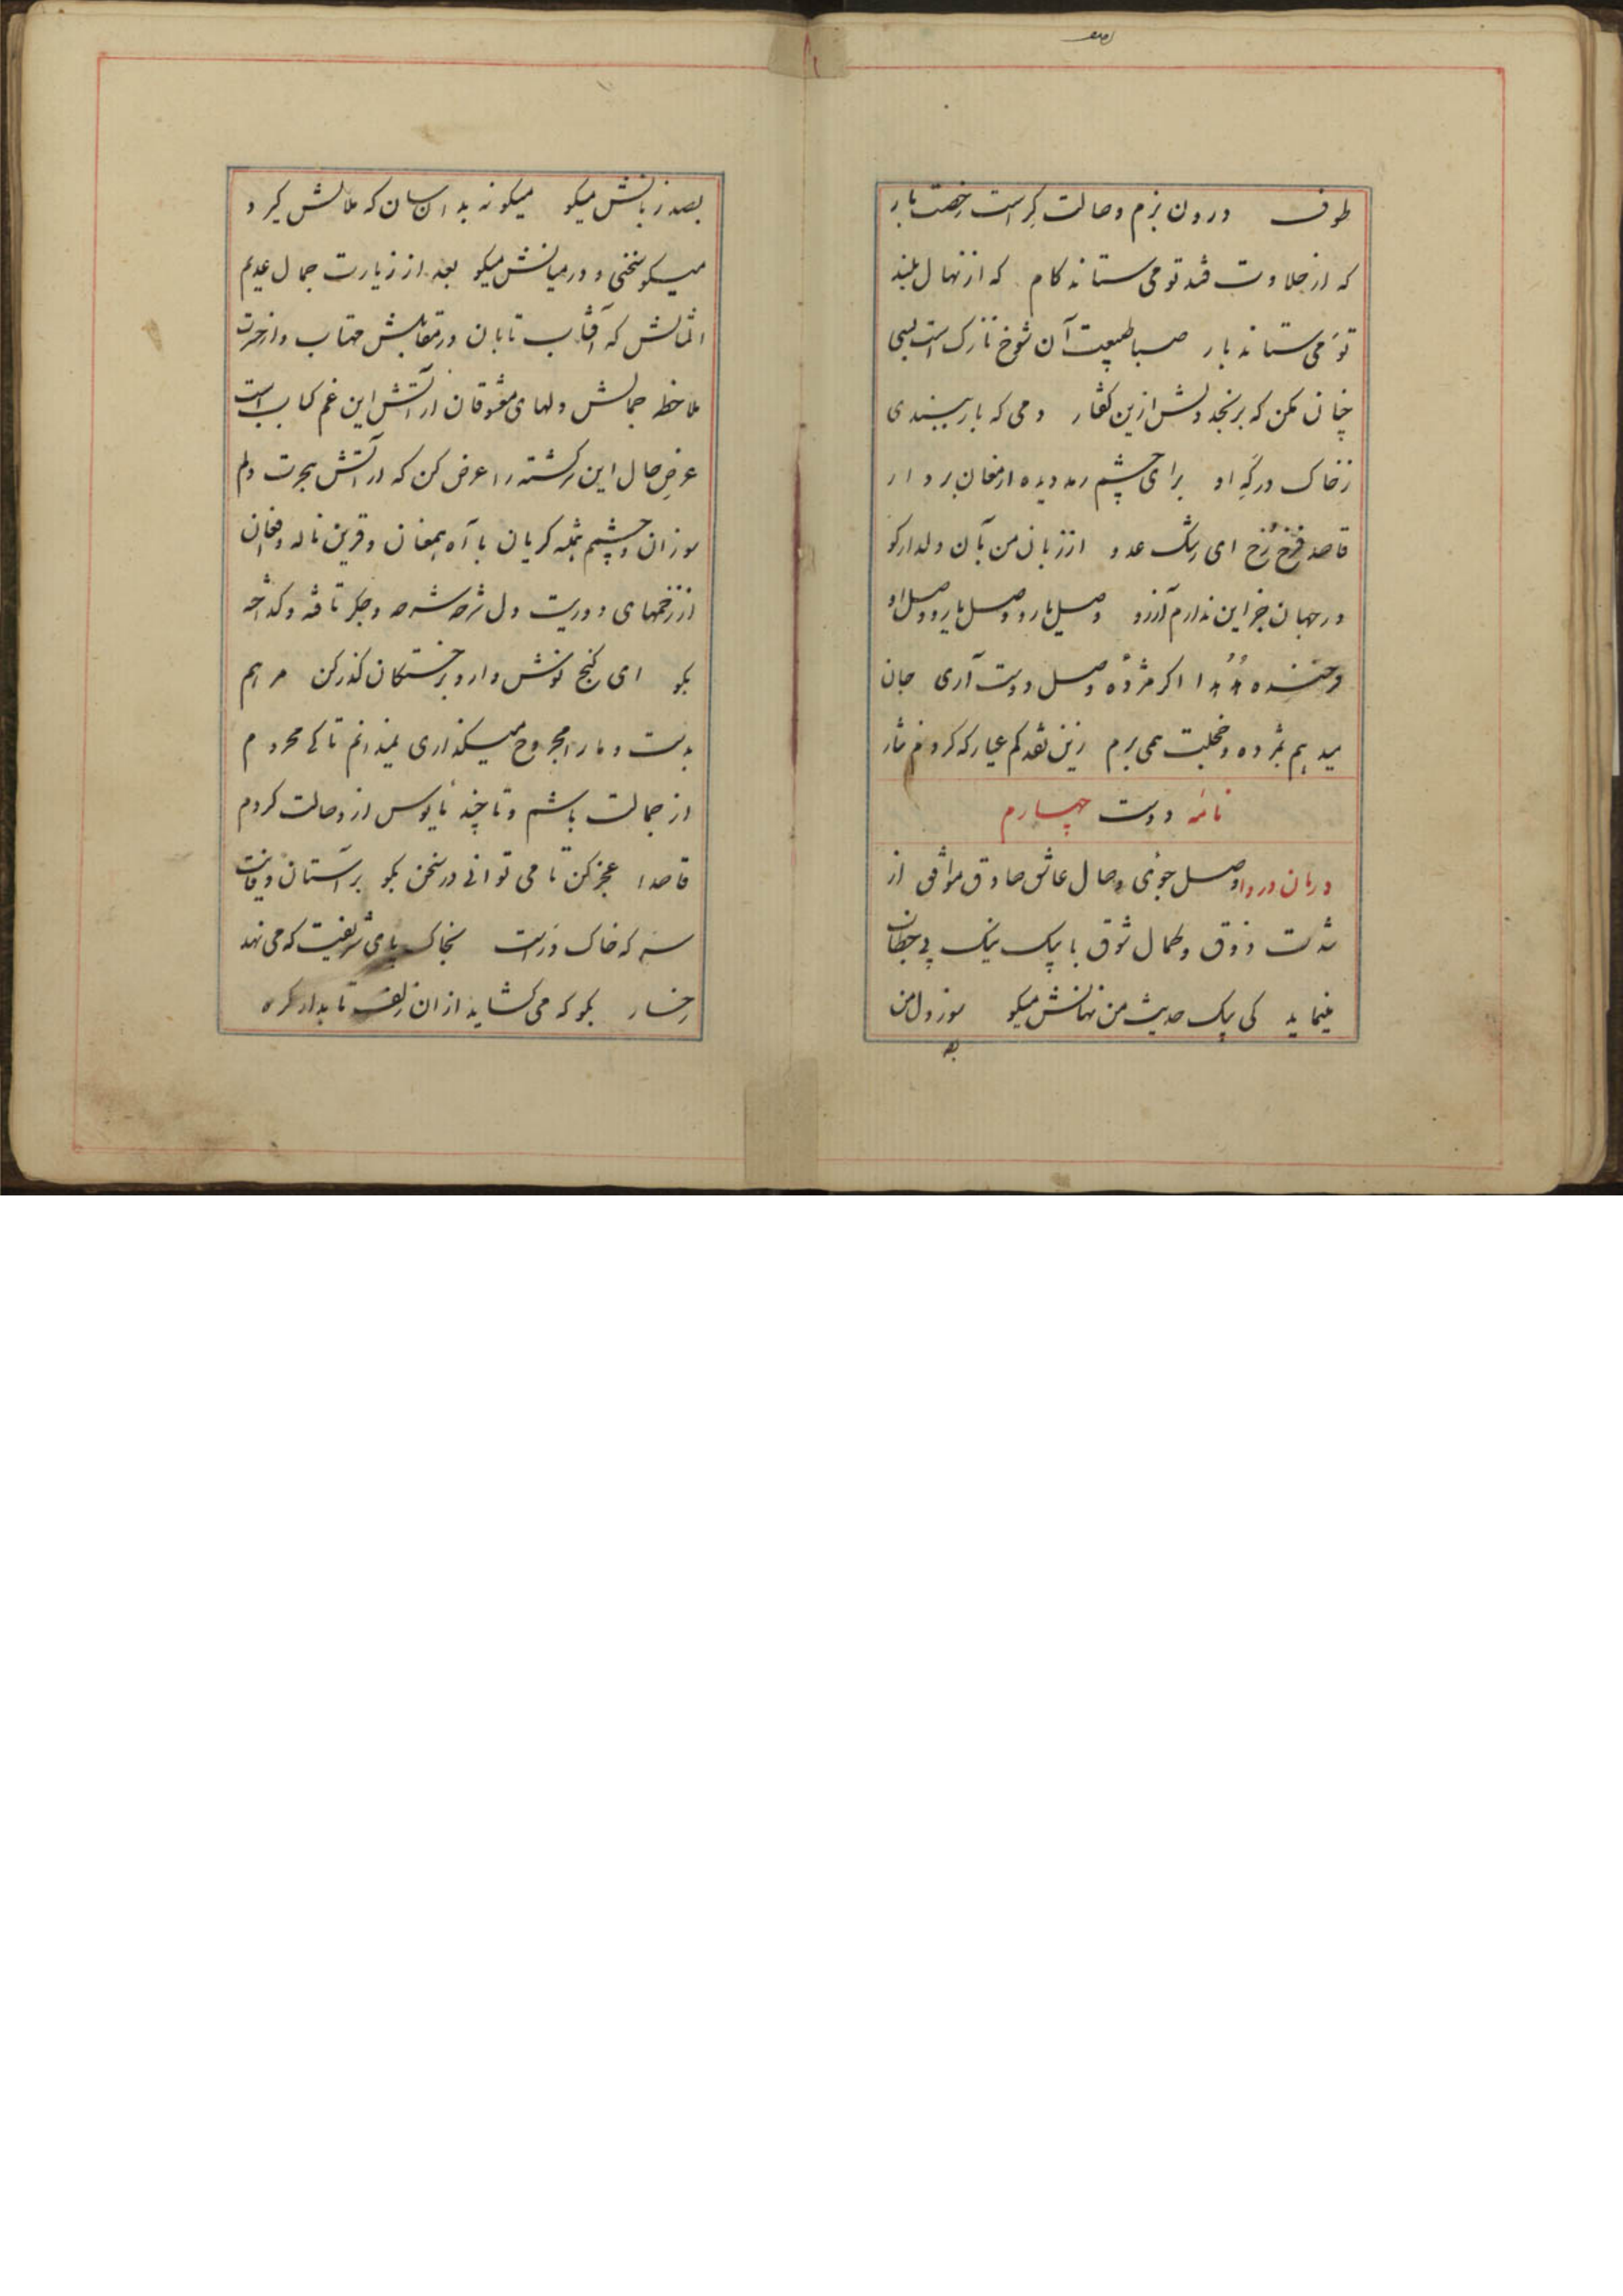 طوف درون بزم وصالت کراست رخصت بار
که از حلاوت قند تو می ستاند کام که از نهال بلند
تو می ستاند بار صبا طبیعت آن شوخ نازک است بسی
چنان مکن که برنجد دلش ازین گفتار دمی که باز ببیندی
زخاک درگه او برای چشم رمد دیده ارمغان بردار
قاصد فرخ رخ ای رشک عدو از زبان من بآن دلدار کو
در جهان جز این ندارم آرزو وصل یار و وصل یار و وصل او
فرخنده هدهدا اکر مژدهٔ وصل دوست آری جان
میدهم بمژده و خجلت همی برم زین نقد کم عیار که کردم نثار
نامهٔ دوست چهارم
درمان دردا وصل جوی وصال عاشق صادق موافق از
شدت ذوق و کمال شوق با پیک نیک پی خطاب
مینماید کی پیک حدیث من نهانش میکو سوز دل من
بصد
بصد زبانش میکو میکو نه بدانسان که ملالش گیرد
میکو سخنی و در میانش میکو بعد از زیارت جمال عدیم
المثالش که آفتاب تابان در مقابلش مهتاب و از حسرت
ملاحظه جمالش دلهای معشوقان از آتش این غم کباب است
عرض حال این سرکشته را عرض کن که از آتش هجرت دلم
سوزان و چشم همیشه کریان با آه همعنان و قرین ناله و فغان
از زخمهای دوریت دل شرحه شرحه و جکر تافته و کداخته
بکو ای کنج نوش دارو بر خستکان کذر کن مرهم
بدست و ما را مجروح میکذاری نمیدانم تا کی محروم
از جمالت باشم و تا چند مأیوس از وصالت کردم
قاصدا عجز کن تا می توانی در سخن بکو بر آستان وفایت
سر که خاک درست بخاک پای شریفت که می نهد
رخسار بکو که می کشاید از ان زلف تابدار کره